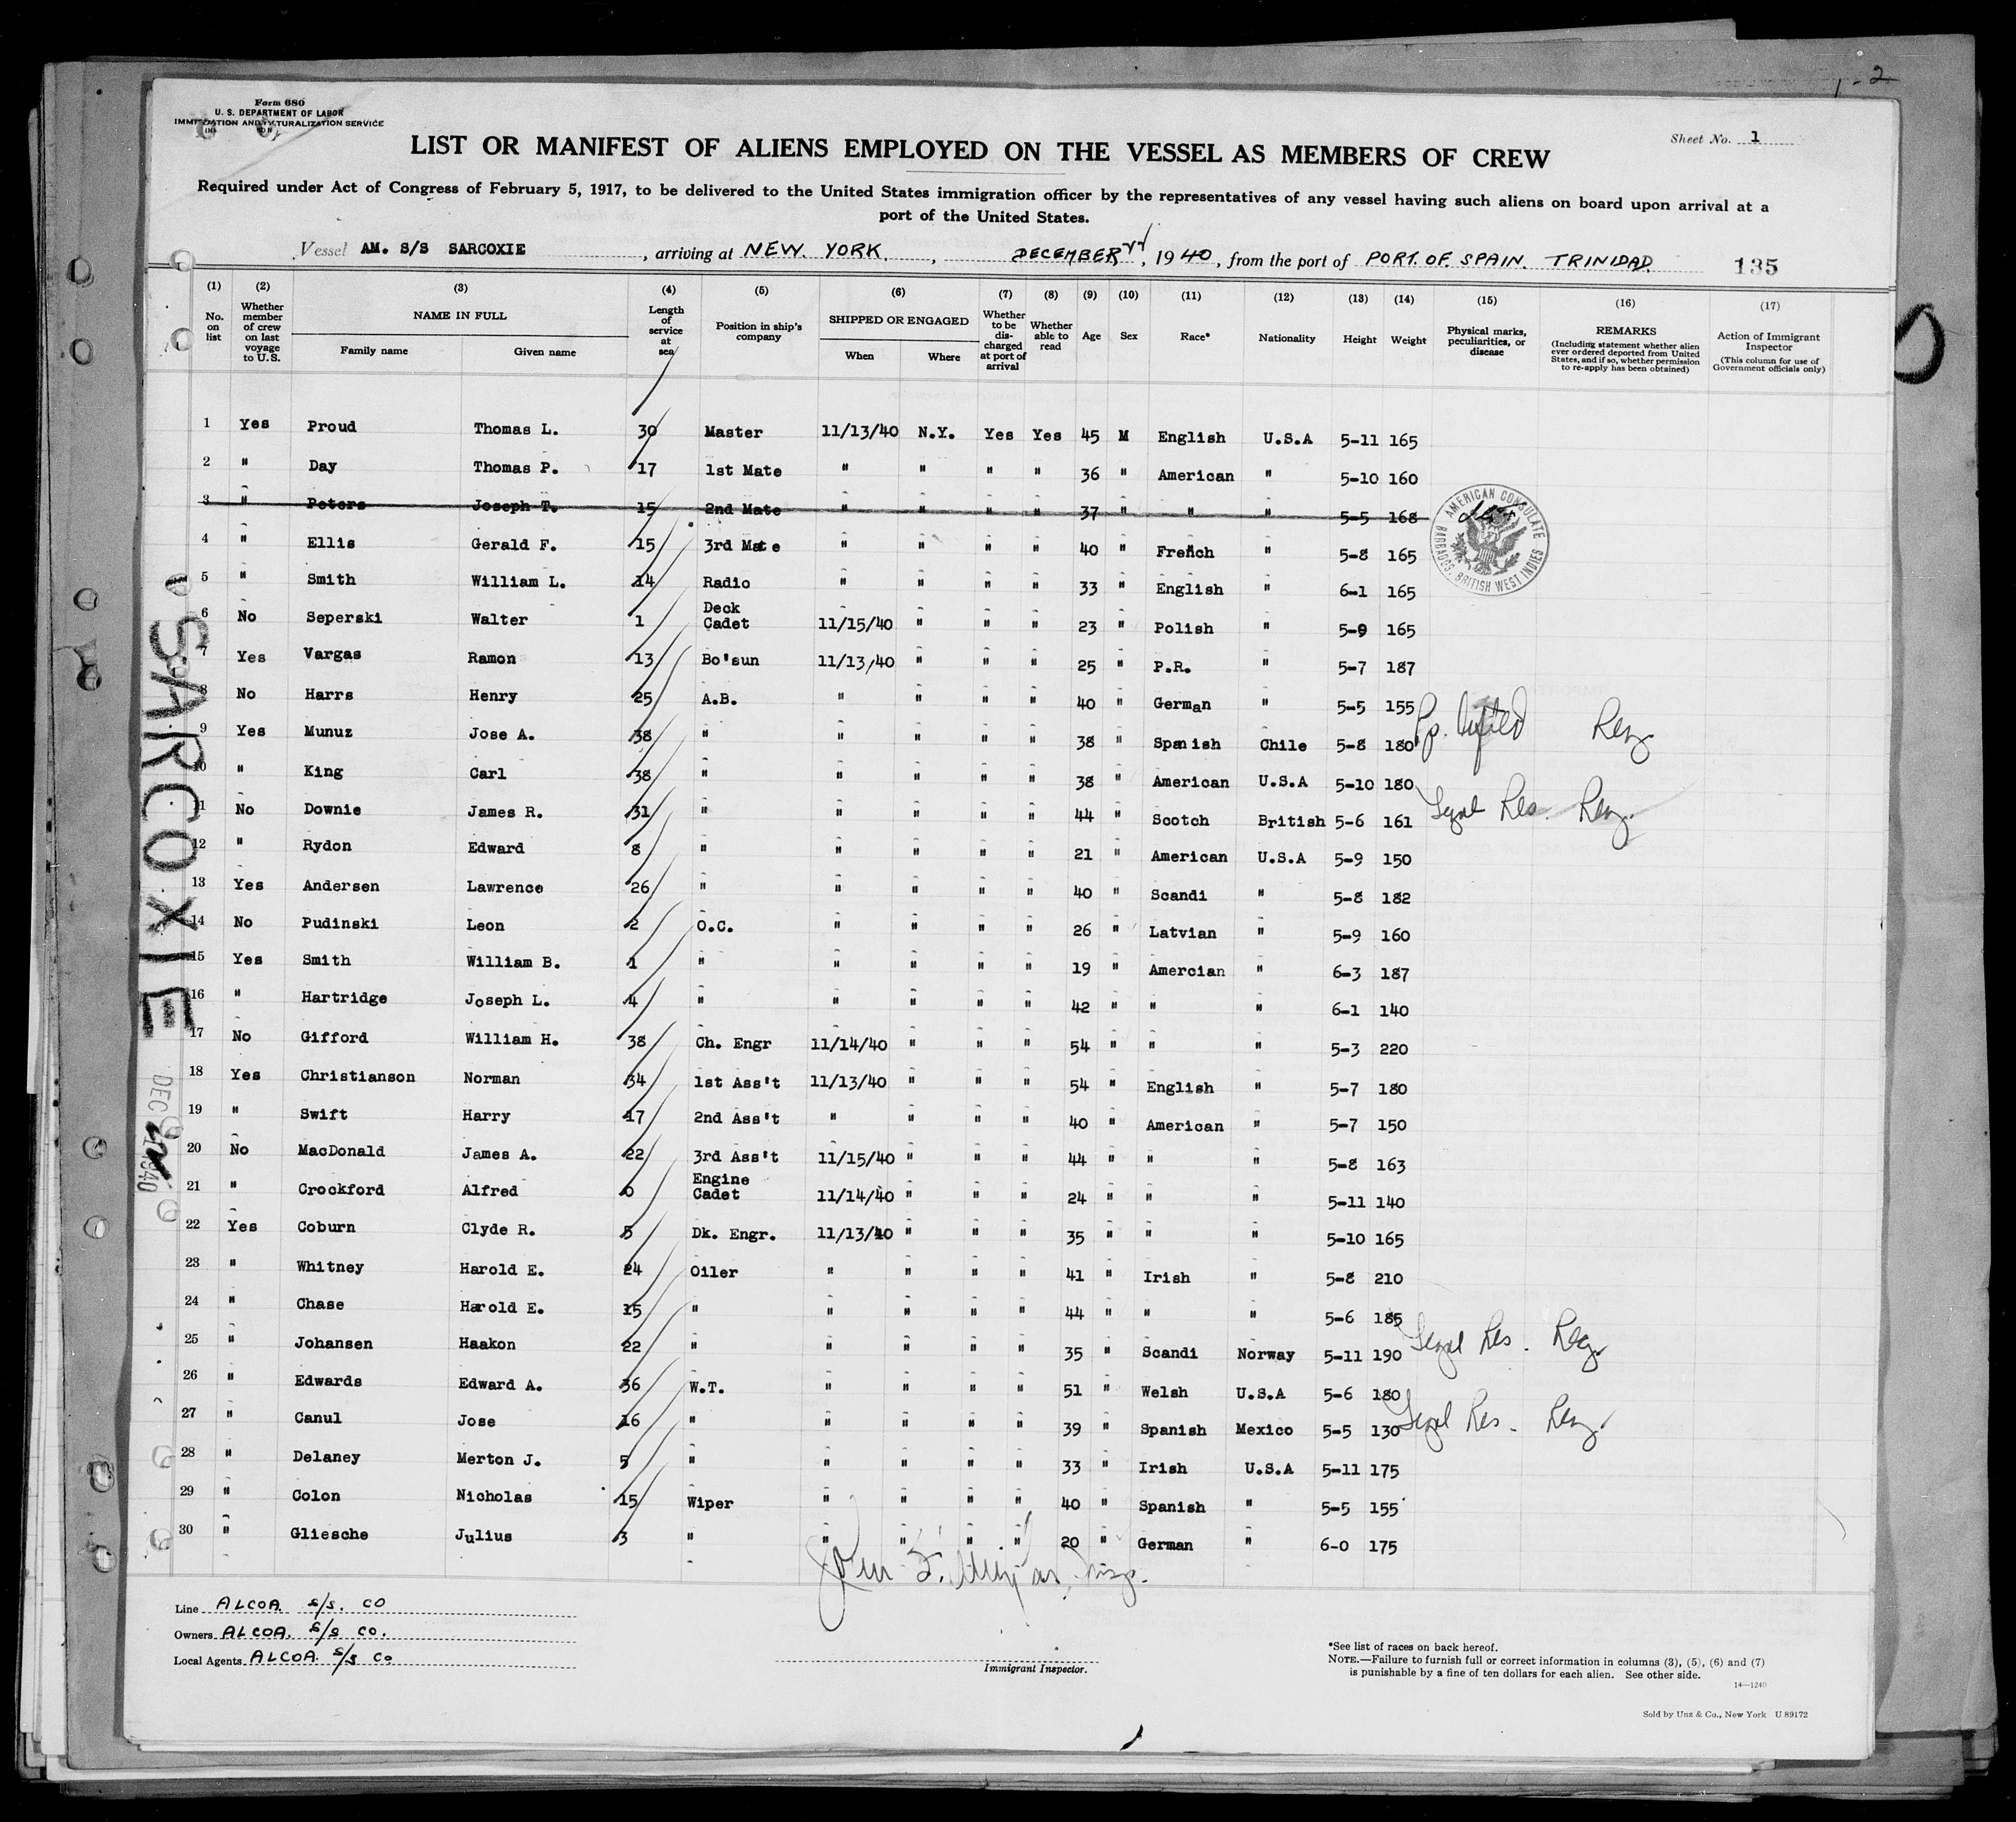 1-2
Form 680
U. S. DEPARTMENT OF LABOR
IMMIGRATION AND NATURALIZATION SERVICE
Sheet No. 1
LIST OR MANIFEST OF ALIENS EMPLOYED ON THE VESSEL AS MEMBERS OF CREW
Required under Act of Congress of February 5, 1917, to be delivered to the United States immigration officer by the representatives of any vessel having such aliens on board upon arrival at a
port of the United States.
Vessel AM. S/S SARCOXIE, arriving at NEW YORK, DECEMBER, 1940, from the port of PORT OF SPAIN. TRINIDAD 135
(1) No. on list
(2) Whether member of crew on last voyage to U.S.
(3) NAME IN FULL
Family name Given name
(4) Length of service at sea
(5) Position in ship's company
(6) SHIPPED OR ENGAGED
When Where
(7) Whether to be discharged at port of arrival
(8) Whether able to read
(9) Age
(10) Sex
(11) Race*
(12) Nationality
(13) Height
(14) Weight
(15) Physical marks, peculiarities, or disease
(16) REMARKS
(Including statement whether alien ever ordered deported from United States, and if so, whether permission to re-apply has been obtained)
(17) Action of Immigrant Inspector
(This column for use of Government officials only)
1 Yes Proud Thomas L. 30 Master 11/13/40 N.Y. Yes Yes 45 M English U.S.A 5-11 165
2 " Day Thomas P. 17 1st Mate " " " " 36 " American " 5-10 160
3 " Peters Joseph T. 15 2nd Mate " " " " 37 " " " 5-5 168
AMERICAN CONSULATE BARBADOS, BRITISH WEST INDIES
4 " Ellis Gerald F. 15 3rd Mate " " " " 40 " French " 5-8 165
5 " Smith William L. 14 Radio " " " " 33 " English " 6-1 165
6 No Seperski Walter 1 Deck Cadet 11/15/40 " " " 23 " Polish " 5-9 165
7 Yes Vargas Ramon 13 Bo'sun 11/13/40 " " " 25 " P.R. " 5-7 187
8 No Harrs Henry 25 A.B. " " " " 40 " German " 5-5 155
9 Yes Munuz Jose A. 38 " " " " " 38 " Spanish Chile 5-8 180 Pp. lifted
10 " King Carl 38 " " " " " 38 " American U.S.A 5-10 180
11 No Downie James R. 31 " " " " " 44 " Scotch British 5-6 161 Legal Res.
12 " Rydon Edward 8 " " " " " 21 " American U.S.A 5-9 150
13 Yes Andersen Lawrence 26 " " " " " 40 " Scandi " 5-8 182
14 No Pudinski Leon 2 O.C. " " " " 26 " Latvian " 5-9 160
15 Yes Smith William B. 1 " " " " " 19 " Amercian " 6-3 187
16 " Hartridge Joseph L. 4 " " " " " 42 " " " 6-1 140
17 No Gifford William H. 38 Ch. Engr 11/14/40 " " " 54 " " " 5-3 220
18 Yes Christianson Norman 34 1st Ass't 11/13/40 " " " 54 " English " 5-7 180
19 " Swift Harry 17 2nd Ass't " " " " 40 " American " 5-7 150
20 No MacDonald James A. 22 3rd Ass't 11/15/40 " " " 44 " " " 5-8 163
21 " Crockford Alfred 0 Engine Cadet 11/14/40 " " " 24 " " " 5-11 140
22 Yes Coburn Clyde R. 5 Dk. Engr. 11/13/40 " " " 35 " " " 5-10 165
23 " Whitney Harold E. 24 Oiler " " " " 41 " Irish " 5-8 210
24 " Chase Harold E. 15 " " " " " 44 " " " 5-6 185
25 " Johansen Haakon 22 " " " " " 35 " Scandi Norway 5-11 190 Legal Res.
26 " Edwards Edward A. 36 W.T. " " " " 51 " Welsh U.S.A 5-6 180
27 " Canul Jose 16 " " " " " 39 " Spanish Mexico 5-5 130 Legal Res.
28 " Delaney Merton J. 5 " " " " " 33 " Irish U.S.A 5-11 175
29 " Colon Nicholas 15 Wiper " " " " 40 " Spanish " 5-5 155
30 " Gliesche Julius 3 " " " " " 20 " German " 6-0 175
SARCOXIE
DEC 1940
Line ALCOA S/S. CO
Owners ALCOA. S/S CO.
Local Agents ALCOA S/S Co
Immigrant Inspector.
*See list of races on back hereof.
NOTE.—Failure to furnish full or correct information in columns (3), (5), (6) and (7)
is punishable by a fine of ten dollars for each alien. See other side.
14—1240
Sold by Unz & Co., New York U 89172